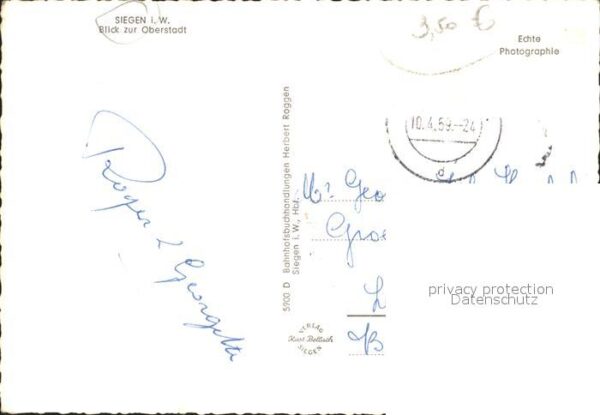 SIEGEN i. W.
Blick zur Oberstadt
3,50 €
Echte
Photographie
10.4.59.-24
d
Roger & Georgette
5900 D Bahnhofsbuchhandlungen Herbert Roggen
Siegen i. W., Hbf.
VERLAG
Kurt Bellach
SIEGEN
Mr Geo
Groe
L
B
privacy protection
Datenschutz